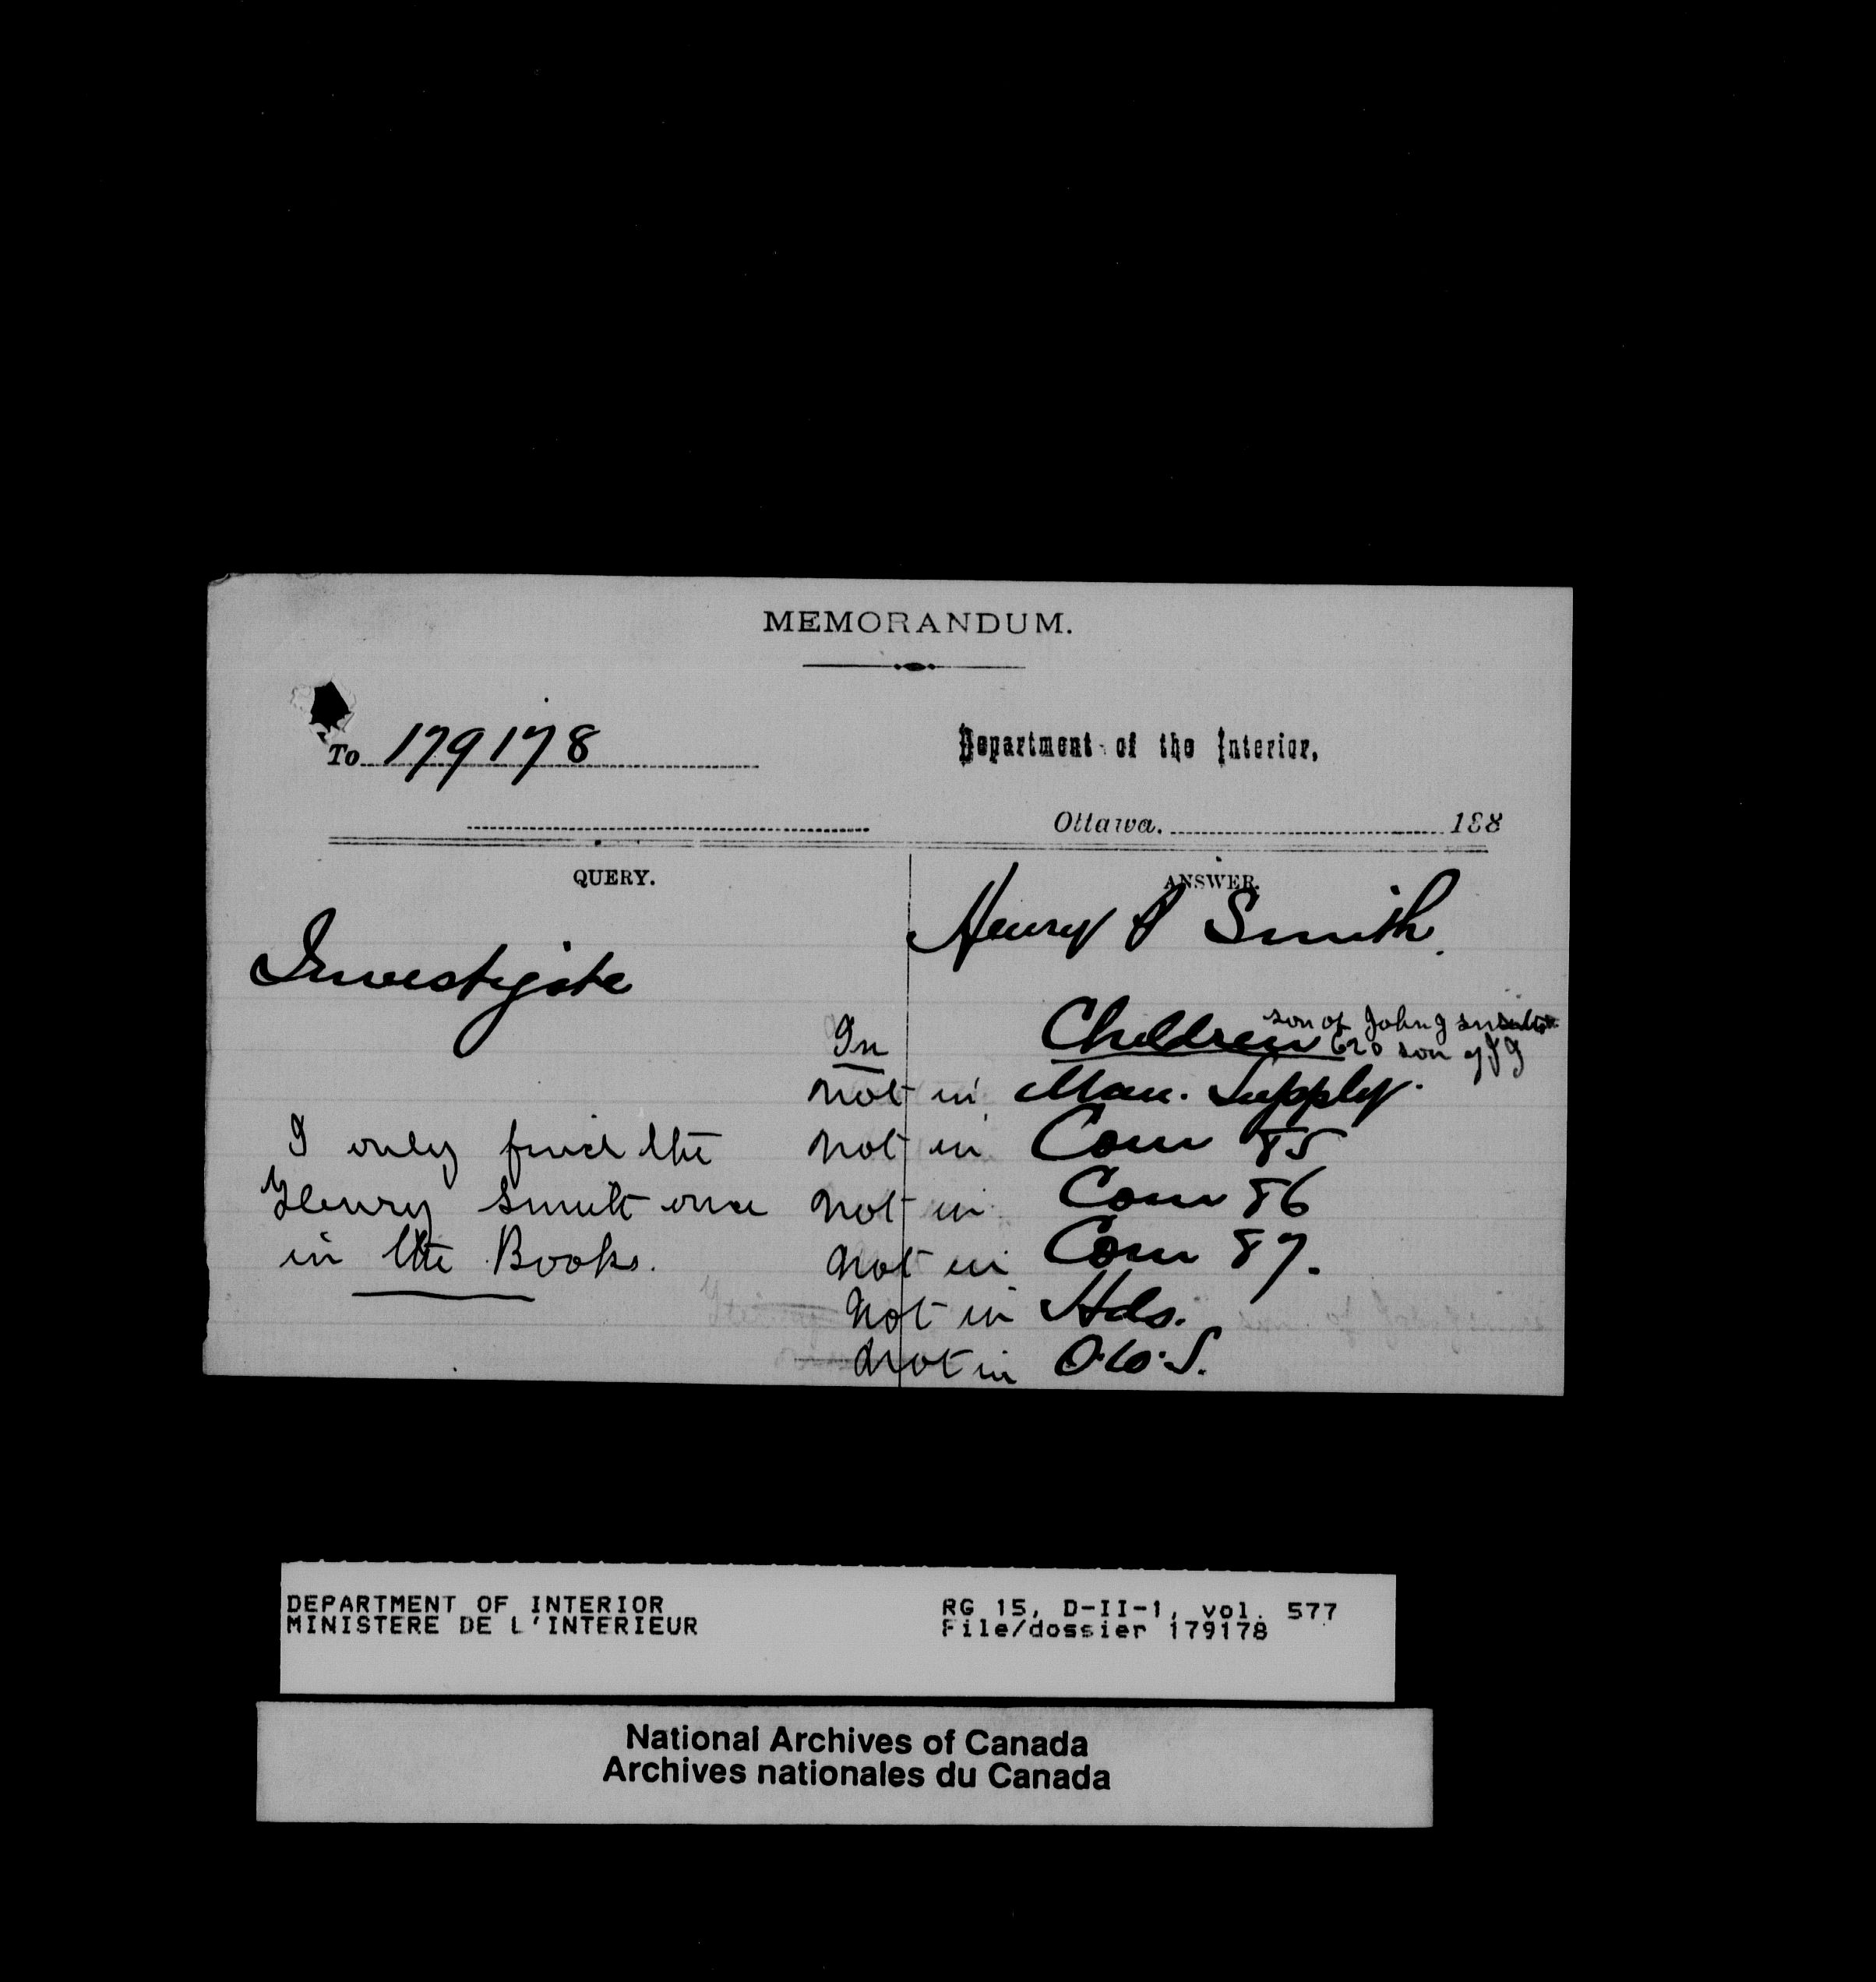 MEMORANDUM.
To 179178
Department of the Interior,
Ottawa. 188
QUERY.
ANSWER.
Investigate
Henry P Smith.
In Children son of John J
620 son of J J
not in Man. Supply.
I only find the
Henry Smith once
in the Books.
not in Com 85
not in Com 86
not in Com 87.
not in Hds.
not in O.W.S.
DEPARTMENT OF INTERIOR
MINISTERE DE L'INTERIEUR
RG 15, D-II-1, vol. 577
File/dossier 179178
National Archives of Canada
Archives nationales du Canada